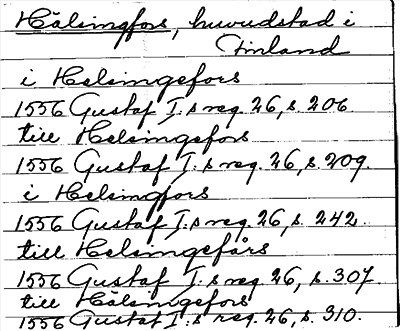 Hälsingfors, huvudstad i
Finland
i Helsingefors
1556 Gustaf I:s reg. 26, s. 206
till Helsingefors
1556 Gustaf I:s reg. 26, s. 209.
i Helsingfors
1556 Gustaf I:s reg. 26, s. 242.
till Helsingefårs
1556 Gustaf I:s reg. 26, s. 307.
till Hälsingefors
1556 Gustaf I:s reg. 26, s. 310.